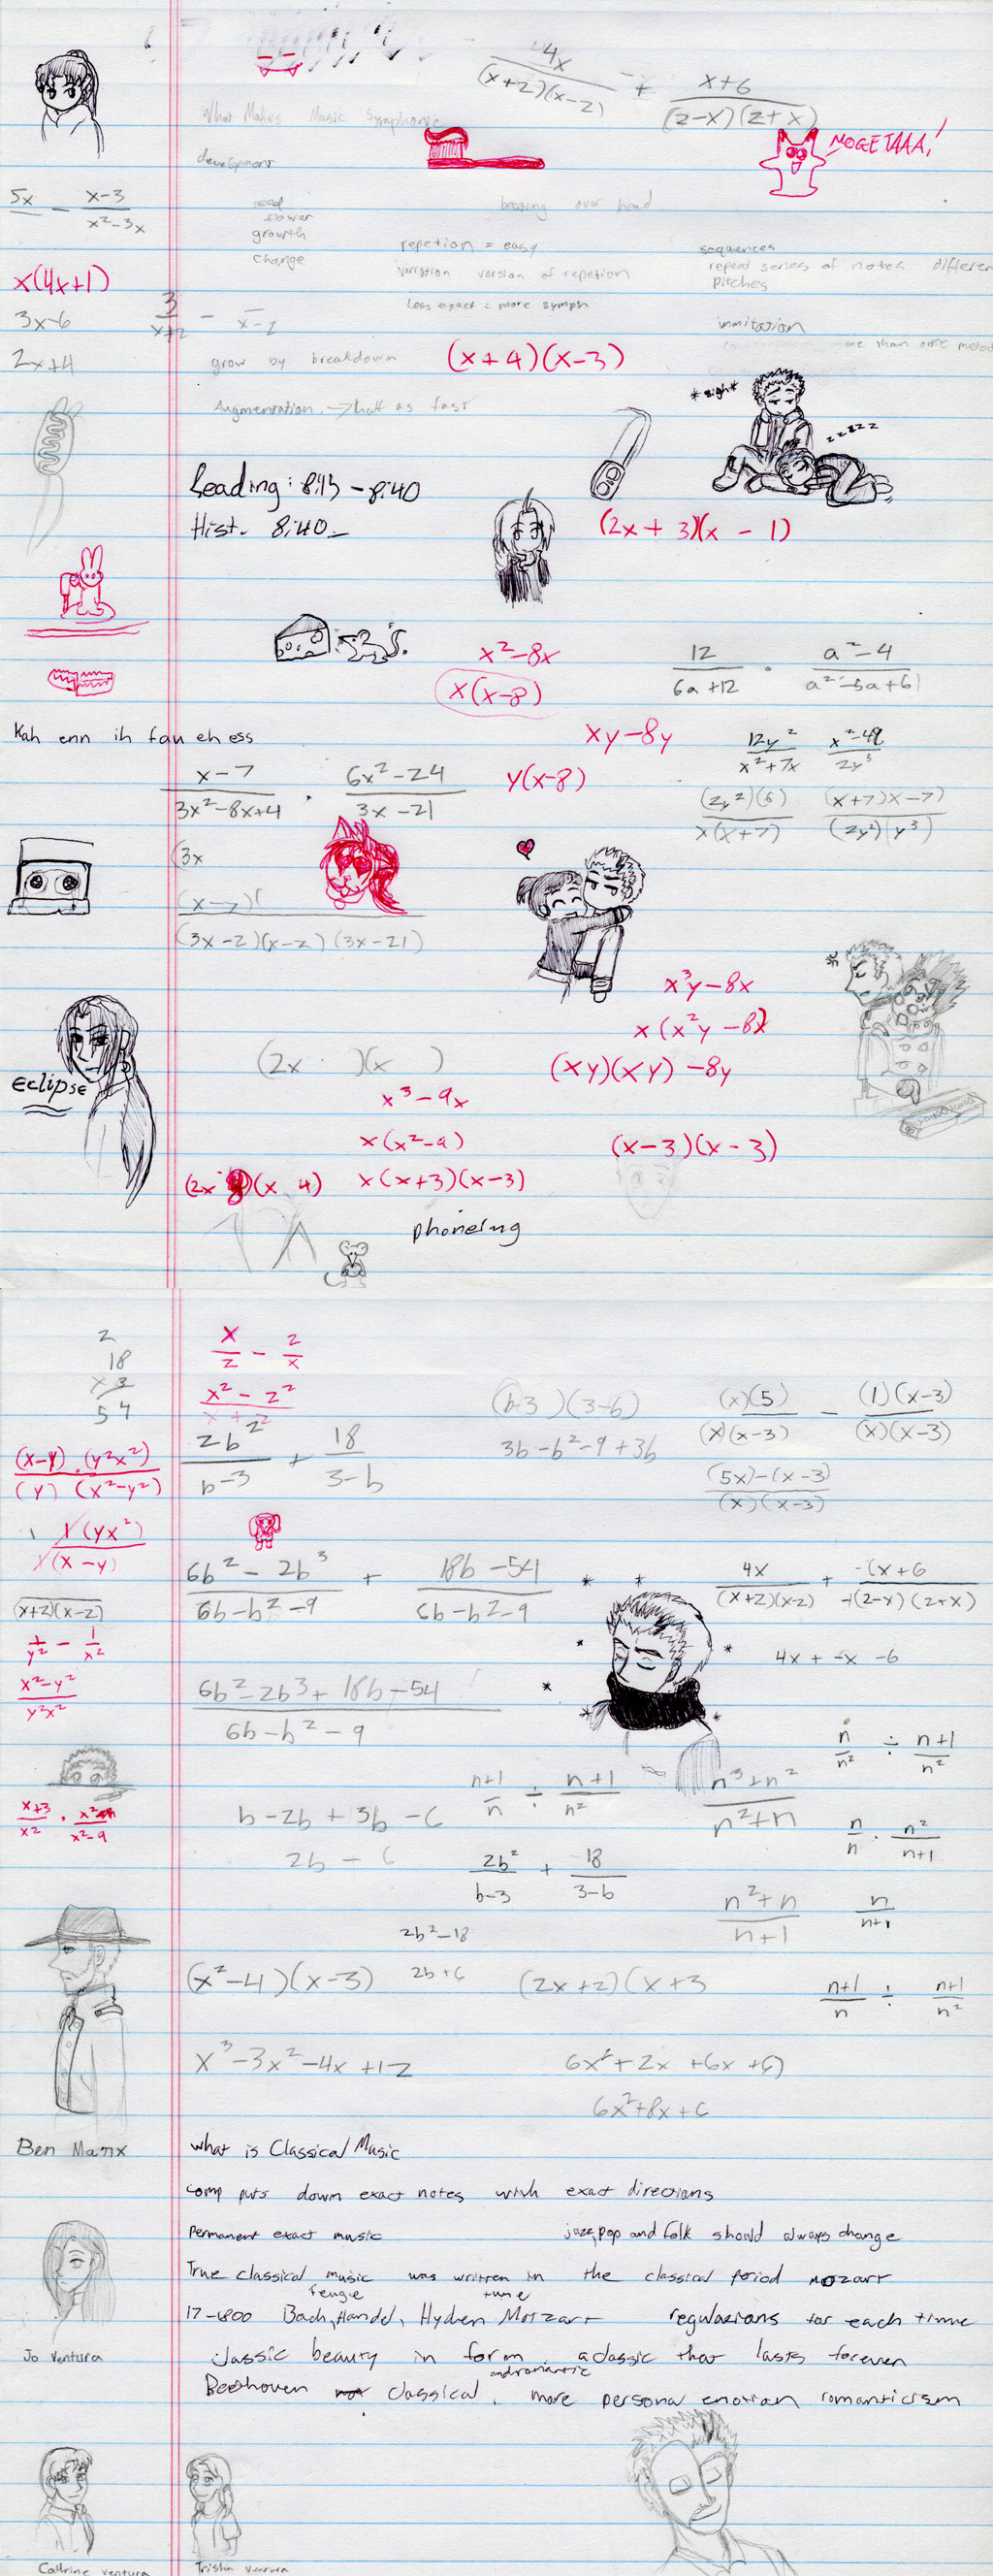 4x / (x+2)(x-2) + x+6 / (2-x)(2+x)
What Makes Music Symphonic
development
MOGETAAA!
5x - x-3 / x²-3x
flower
growth
change
repetion = easy
version of repetion
Less exact = more symph
sequences
repeat series of notes differen
pitches
immitation
more than one melod
x(4x+1)
3x-6
3 / x+2 - / x-2
2x+4
grow by breakdown
(x+4)(x-3)
Augmentation -> half as fast
*sigh*
zzzzz
Reading: 8:15 - 8:40
Hist. 8:40-
(2x + 3)(x - 1)
x²-8x
x(x-8)
12 / 6a+12 · a²-4 / a²-5a+6
Kah enn ih fau eh ess
xy-8y
y(x-8)
12y² / x²+7x x²-49 / 2y⁵
(2y²)(6) / x(x+7) (x+7)(x-7) / (2y²)(y³)
x-7 / 3x²-8x+4 · 6x²-24 / 3x-21
(3x
(x-7)( / (3x-2)(x-2)(3x-21)
x³y-8x
x(x²y-8)
(xy)(xy)-8y
eclipse
(2x )(x )
x³-9x
x(x²-9)
(x-3)(x-3)
(2x )(x 4)
x(x+3)(x-3)
phoneing
2
18
x 3
54
x / 2 - 2 / x
x² - 2² / x + 2
(b-3)(3-b)
3b-b²-9+3b
(x)(5) / (x)(x-3) - (1)(x-3) / (x)(x-3)
(5x)-(x-3) / (x)(x-3)
(x-y) · (y²x²) / (y) (x²-y²)
2b² / b-3 + 18 / 3-b
1 y(yx²) / (x-y)
6b²-2b³ / 6b-b²-9 + 18b-54 / 6b-b²-9
4x / (x+2)(x-2) + -(x+6 / -(2-x)(2+x)
(x+2)(x-2)
1 / y² - 1 / x²
4x + -x -6
x²-y² / y²x²
6b²-2b³+18b-54 / 6b-b²-9
n / n² ÷ n+1 / n²
n+1 / n ÷ n+1 / n²
n³+n² / n²+n
x+3 / x² · x² / x²-9
b-2b+3b-6
2b-6
2b² / b-3 + 18 / 3-b
n / n · n² / n+1
n²+n / n+1
n / n+1
2b²-18
2b+6
(x²-4)(x-3)
(2x+2)(x+3
n+1 / n ÷ n+1 / n²
x³-3x²-4x+12
6x²+2x+6x+6)
6x²+8x+6
Ben Manx
what is Classical Music
comp puts down exact notes with exact directions
Permanent exact music jazz, pop and folk should always change
True classical music was written in the classical period mozart
feugie tune
17-1800 Bach, Handel, Hyden Motzart regulations for each time
Jo Ventura
classic beauty in form. a classic that lasts foreven
and romantic
Beethoven not classical. more personal emotian romanticism
Cathrine Ventura
Trisha Ventura